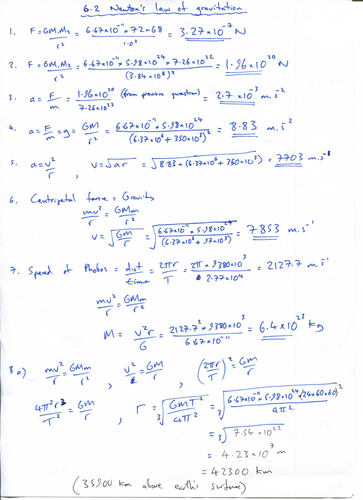 6.2 Newton's law of gravitation
1. F = GM₁M₂/r² = 6.67x10⁻¹¹ x 72 x 68/1.0² = 3.27x10⁻⁷ N
2. F = GM₁M₂/r² = 6.67x10⁻¹¹ x 5.98x10²⁴ x 7.26x10²²/(3.84x10⁸)² = 1.96x10²⁰ N
3. a = F/m = 1.96x10²⁰/7.26x10²² (from previous question) = 2.7x10⁻³ m.s⁻²
4. a = F/m = g = GM/r² = 6.67x10⁻¹¹ x 5.98x10²⁴/(6.37x10⁶ + 350x10³)² = 8.83 m.s⁻²
5. a = v²/r , v = √ar = √8.83 x (6.37x10⁶ + 350x10³) = 7703 m.s⁻¹
6. Centripetal force = Gravity
mv²/r = GMm/r²
v = √GM/r = √6.67x10⁻¹¹ x 5.98x10²⁴/(6.37x10⁶ + 97x10³) = 7853 m.s⁻¹
7. Speed of Phobos = dist/time = 2πr/T = 2π x 9380x10³/2.77x10⁴ = 2127.7 m.s⁻¹
mv²/r = GMm/r²
M = v²r/G = 2127.7² x 9380x10³/6.67x10⁻¹¹ = 6.4x10²³ kg
8 a) mv²/r = GMm/r² , v² = GM/r , (2πr/T)² = GM/r
4π²r²/T² = GM/r , r = ³√GMT²/4π² = ³√6.67x10⁻¹¹ x 5.98x10²⁴ x (24x60x60)²/4π²
= ³√7.54x10²²
= 4.23x10⁷ m
= 42300 km
(35900 km above earth's surface)